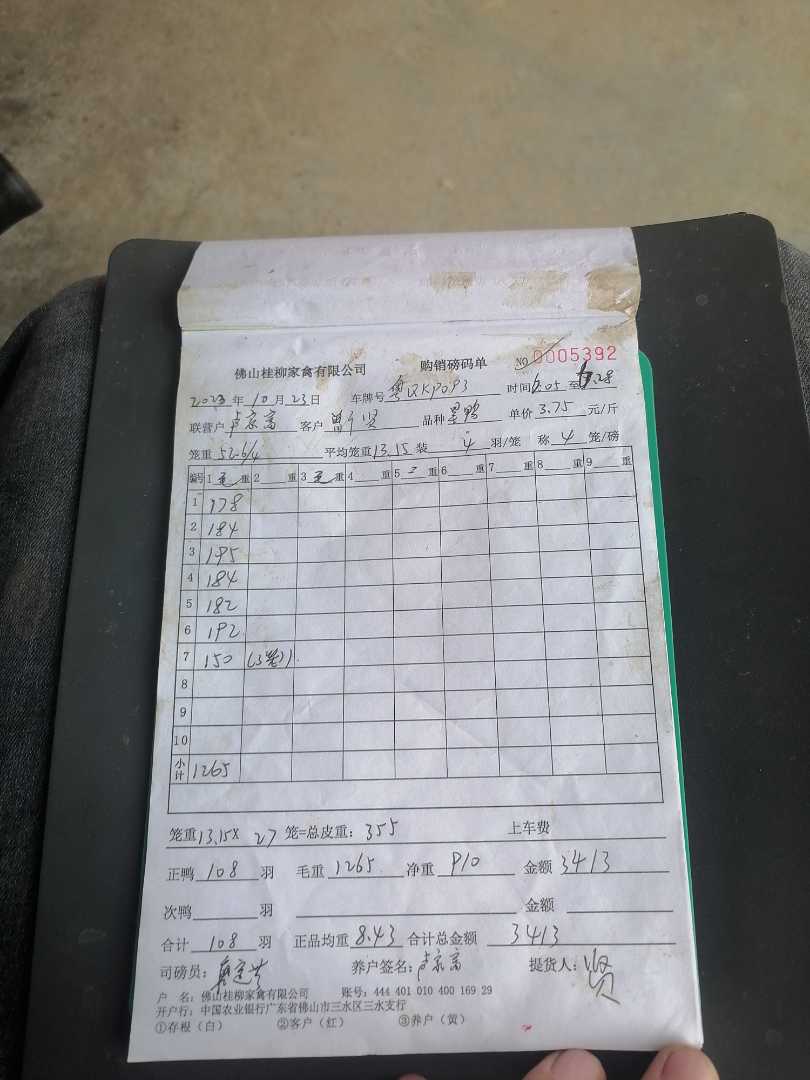 佛山桂柳家禽有限公司 购销磅码单 NO 0005392
2023 年 10 月 23 日 车牌号 粤QKP093 时间 6.05 至 6.28
联营户 卢家富 客户 品种 单价 3.75 元/斤
笼重 52.6/4 平均笼重 13.15 装 4 羽/笼 称 4 笼/磅
编号 1 毛 重 2 重 3 毛 重 4 重 5 重 6 重 7 重 8 重 9 重
1 178
2 184
3 195
4 184
5 182
6 192
7 150 (3笼)
8
9
10
小计 1265
笼重 13.15X 27 笼=总皮重: 355 上车费
正鸭 108 羽 毛重 1265 净重 910 金额 3413
次鸭 羽 金额
合计 108 羽 正品均重 8.43 合计总金额 3413
司磅员: 养户签名: 卢家富 提货人: 贤
户 名: 佛山桂柳家禽有限公司 账号: 444 401 010 400 169 29
开户行: 中国农业银行广东省佛山市三水区三水支行
①存根(白) ②客户(红) ③养户(黄)